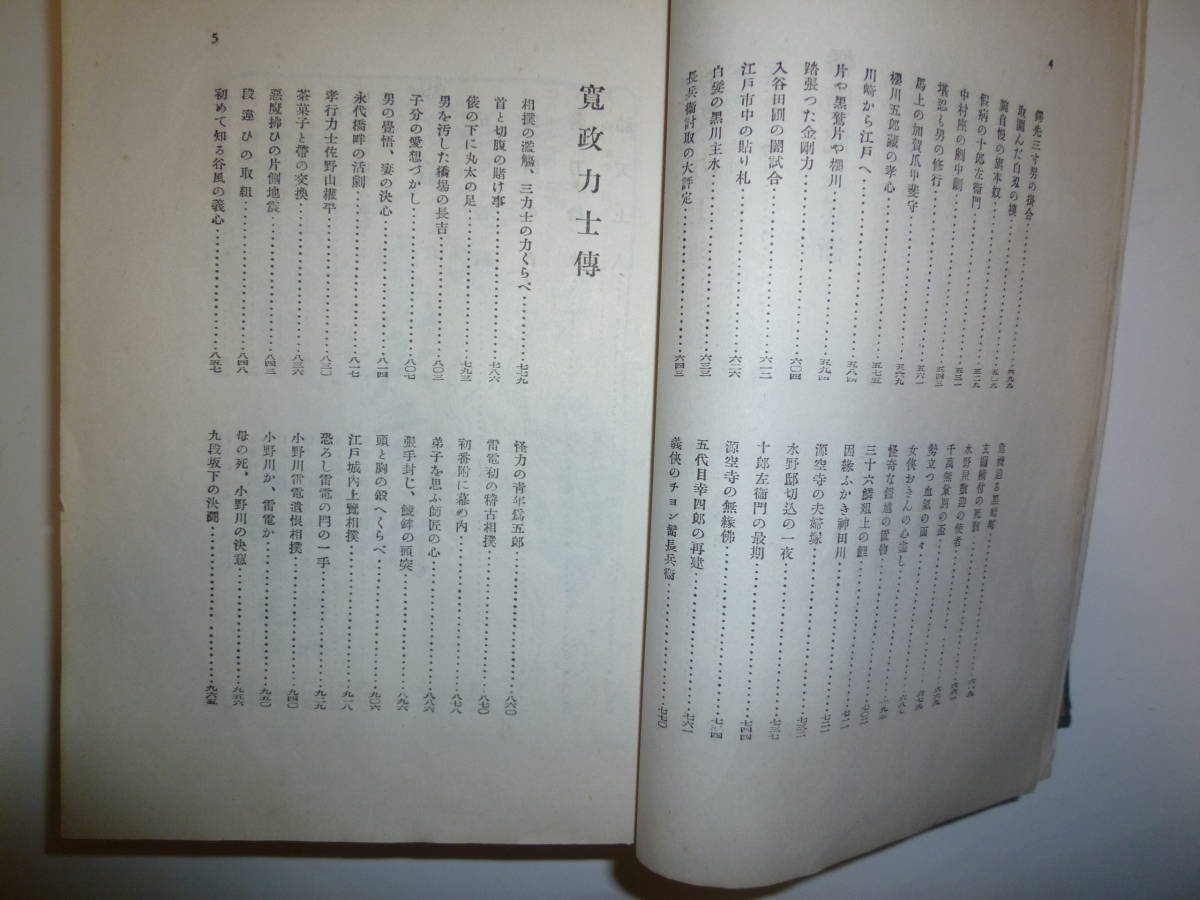 4
鍔先三寸男の掛合…………四九九
取圍んだ白刄の襖…………五〇九
腕自慢の旗本奴…………五二九
假病の十郎左衞門…………五二九
中村座の劍中劇…………五三一
堪忍も男の修行…………五四三
馬上の加賀爪甲斐守…………五六一
櫻川五郎藏の孝心…………五六九
川崎から江戸へ…………五七五
片や黒鷲片や櫻川…………五八四
踏張つた金剛力…………五九四
入谷田圃の闇試合…………六〇四
江戸市中の貼り札…………六一二
白髮の黒川主水…………六二六
長兵衞討取の大評定…………六三三
六四三
水野屋敷迎の使者
千萬無量別の盃
勢立つ血氣の面々…………六六九
女俠おきんの心盡し…………六七九
怪奇な鎧櫃の置物…………六八七
三十六鱗俎上の鯉…………六九七
因縁ふかき神田川…………七〇三
源空寺の夫婦塚…………七一二
水野邸切込の一夜…………七二二
十郎左衞門の最期…………七三二
源空寺の無縁佛…………七三七
五代目幸四郎の再建…………七四四
義俠のチョン髷長兵衞…………七七〇
5
寛政力士傳
相撲の濫觴、三力士の力くらべ…………七七九
首と切腹の賭け事…………七八六
俵の下に丸太の足…………七九三
男を汚した橋場の長吉…………八〇三
子分の愛想づかし…………八〇七
男の覺悟、妻の決心…………八一四
永代橋畔の活劇…………八一七
孝行力士佐野山權平…………八三〇
茶菓子と帶の交換…………八三六
惡魔拂ひの片側地震…………八四三
段違ひの取組…………八四八
初めて知る谷風の義心…………八五七
怪力の青年爲五郎…………八六〇
雷電初の稽古相撲…………八七〇
初番附に幕の内…………八七八
弟子を思ふ師匠の心…………八八六
張手封じ、鯱鉾の頭突…………八九六
頭と胸の鍛へくらべ…………九〇六
江戸城内上覽相撲…………九一八
恐ろし雷電の閂の一手…………九二九
小野川雷電遺恨相撲…………九四〇
小野川か、雷電か…………九五〇
母の死、小野川の決意…………九五六
九段坂下の決鬪…………九六五